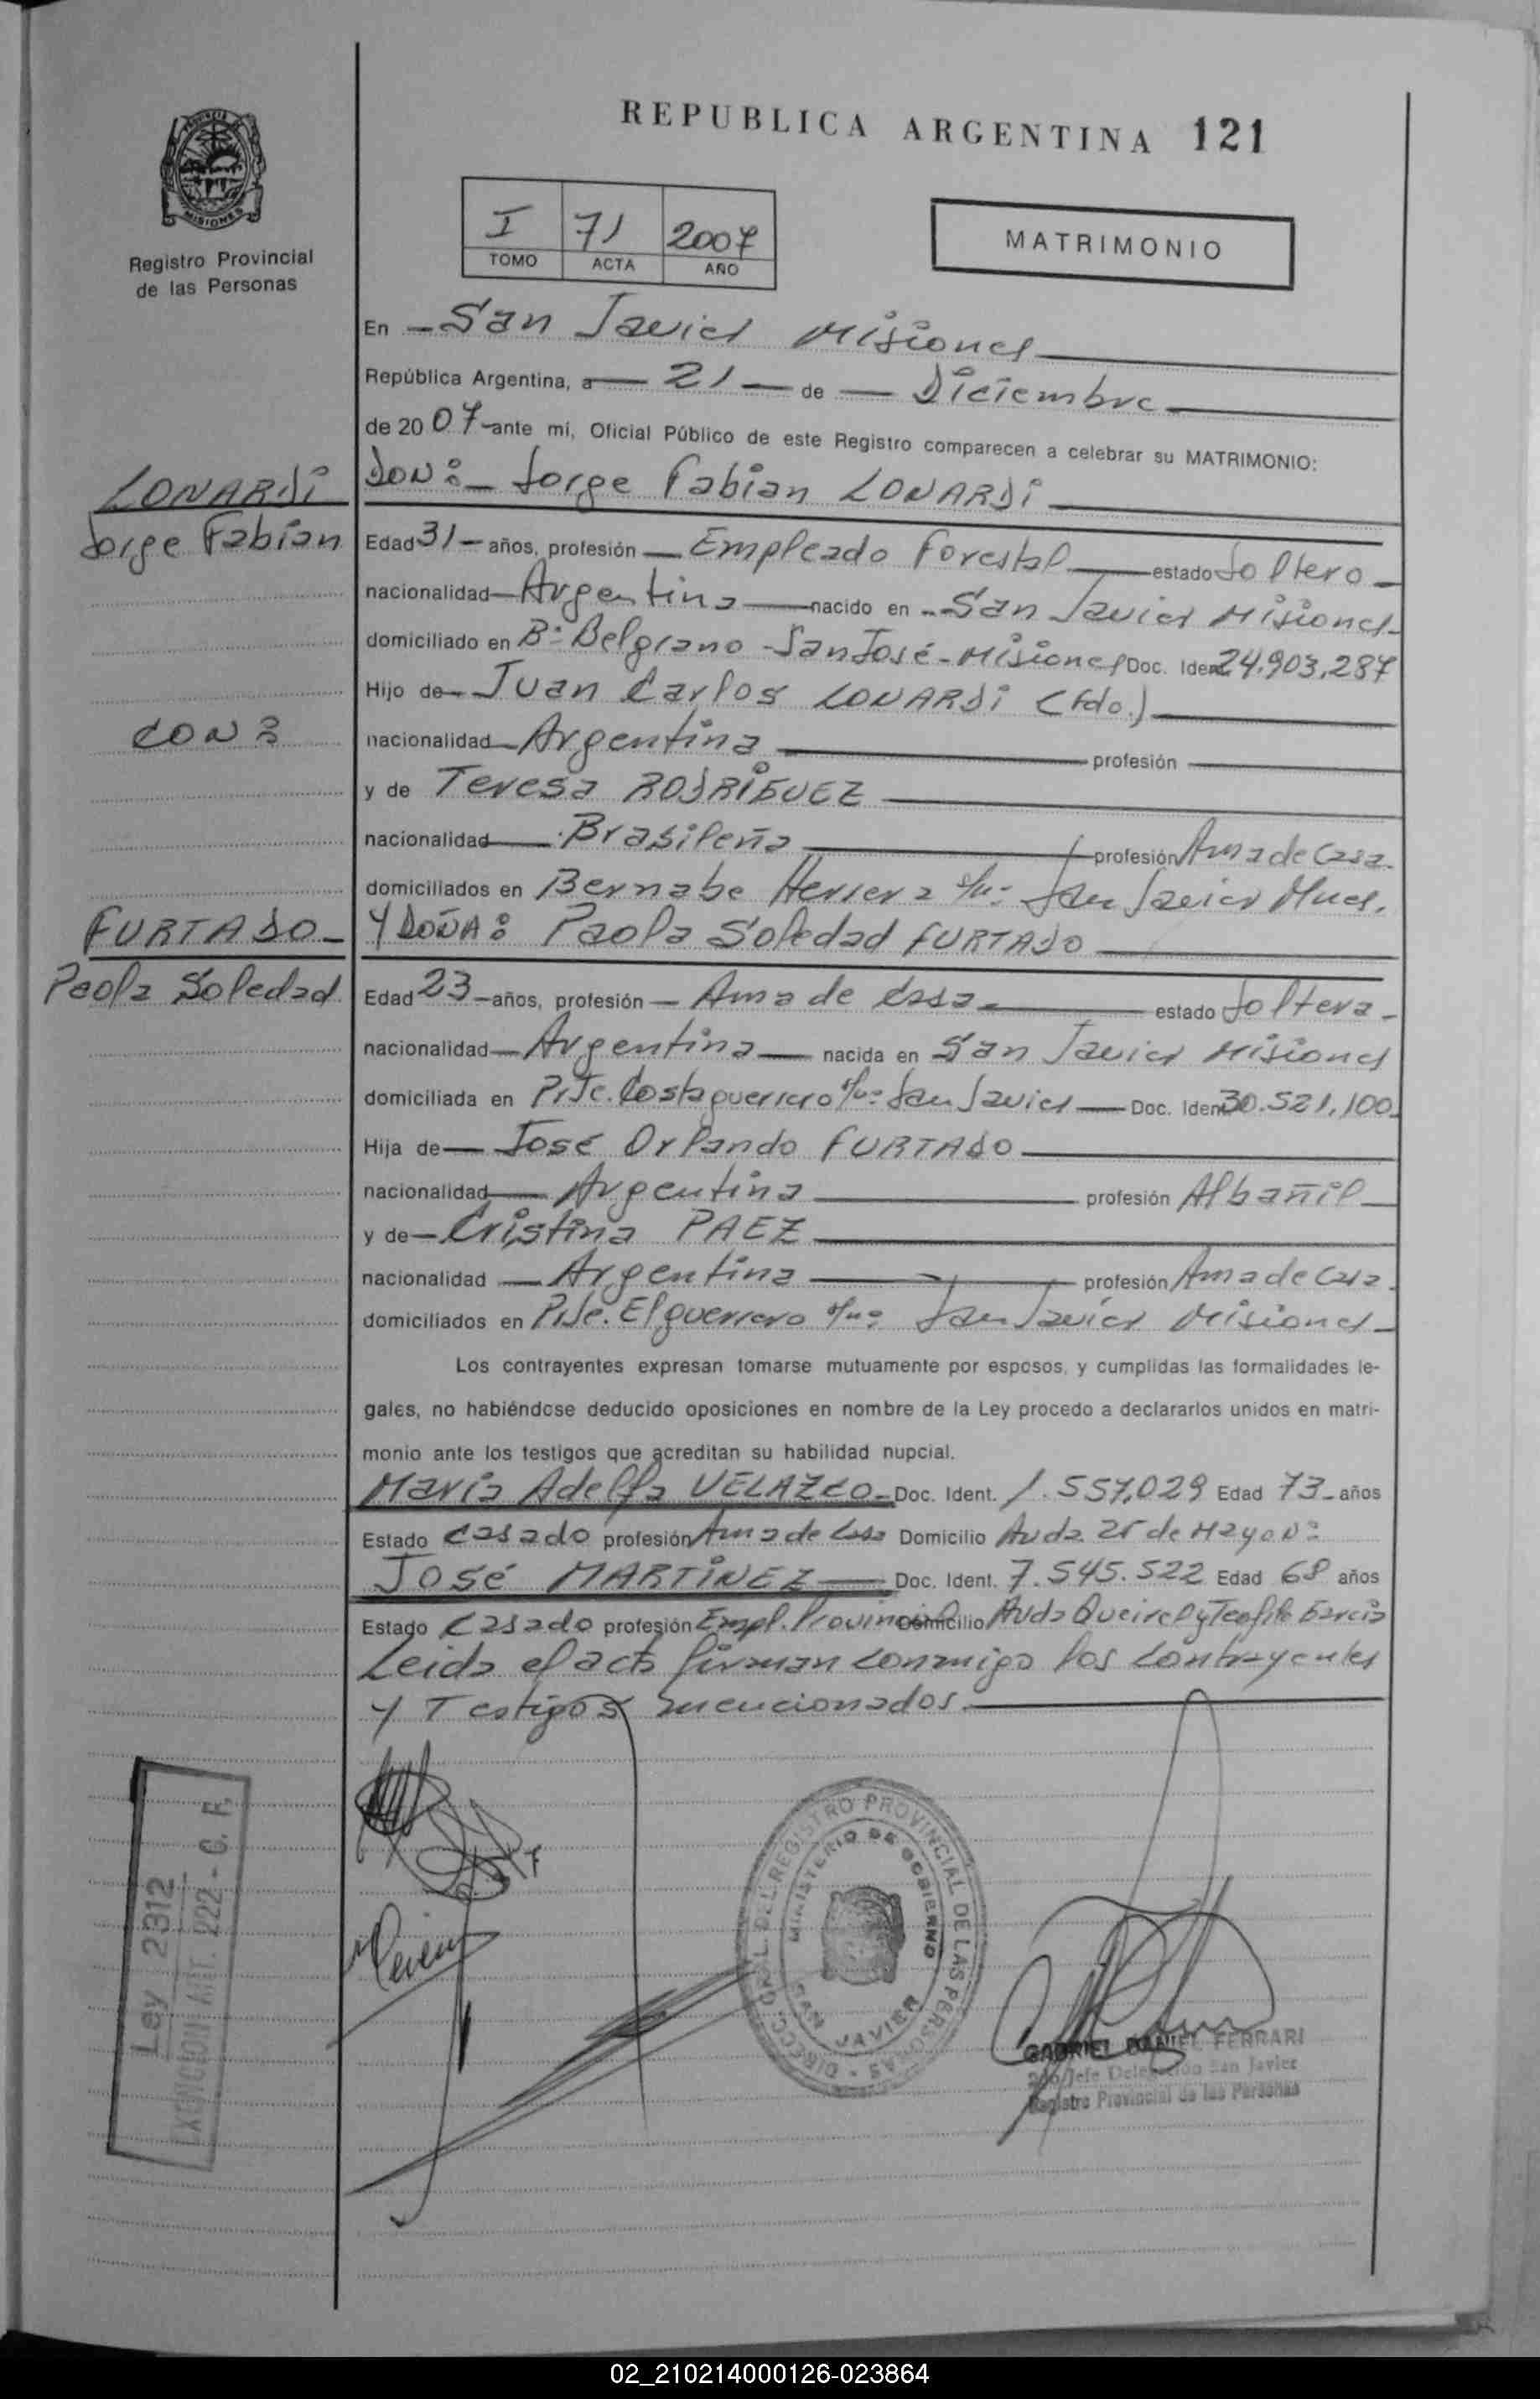 REPUBLICA ARGENTINA 121
PROVINCIA DE
MISIONES
Registro Provincial
de las Personas
I 71 2007
TOMO ACTA AÑO
MATRIMONIO
En - San Javier Misiones
República Argentina, a 21 de Diciembre
de 2007 ante mí, Oficial Público de este Registro comparecen a celebrar su MATRIMONIO:
LONARDI
Jorge Fabian
DON: Jorge Fabian LONARDI
Edad 31 años, profesión Empleado Forestal estado Soltero
nacionalidad Argentina nacido en San Javier Misiones
domiciliado en B: Belgrano - San José - Misiones Doc. Ident. 24.903.287
Hijo de Juan Carlos LONARDI (Fdo.)
CON:
nacionalidad Argentina profesión
y de Teresa RODRIGUEZ
nacionalidad Brasileña profesión Ama de Casa
domiciliados en Bernabe Herrera s/n: San Javier Mnes.
FURTADO
Paola Soledad
Y DOÑA: Paola Soledad FURTADO
Edad 23 años, profesión Ama de Casa estado Soltera
nacionalidad Argentina nacida en San Javier Misiones
domiciliada en Pje. Costa guerrero s/n: San Javier Doc. Ident. 30.521.100
Hija de José Orlando FURTADO
nacionalidad Argentina profesión Albañil
y de Cristina PAEZ
nacionalidad Argentina profesión Ama de Casa
domiciliados en Pje. El guerrero s/n: San Javier Misiones
Los contrayentes expresan tomarse mutuamente por esposos, y cumplidas las formalidades le-
gales, no habiéndose deducido oposiciones en nombre de la Ley procedo a declararlos unidos en matri-
monio ante los testigos que acreditan su habilidad nupcial.
Maria Adelfa VELAZCO Doc. Ident. 1.557.029 Edad 73 años
Estado Casado profesión Ama de Casa Domicilio Avda. 25 de Mayo Nº
JOSÉ MARTINEZ Doc. Ident. 7.545.522 Edad 68 años
Estado Casado profesión Empl. Provincial Domicilio Avda Queirel y Teofilo Garcia
Leida el acta firman conmigo los contrayentes
y Testigos mencionados.
Ley 2312
EXENCION ART. 222 - C. F.
DIRECC. GRAL. DEL REGISTRO PROVINCIAL DE LAS PERSONAS
MINISTERIO DE GOBIERNO
SAN JAVIER
GABRIEL DANIEL FERRARI
2do Jefe Delegación San Javier
Registro Provincial de las Personas
02_210214000126-023864